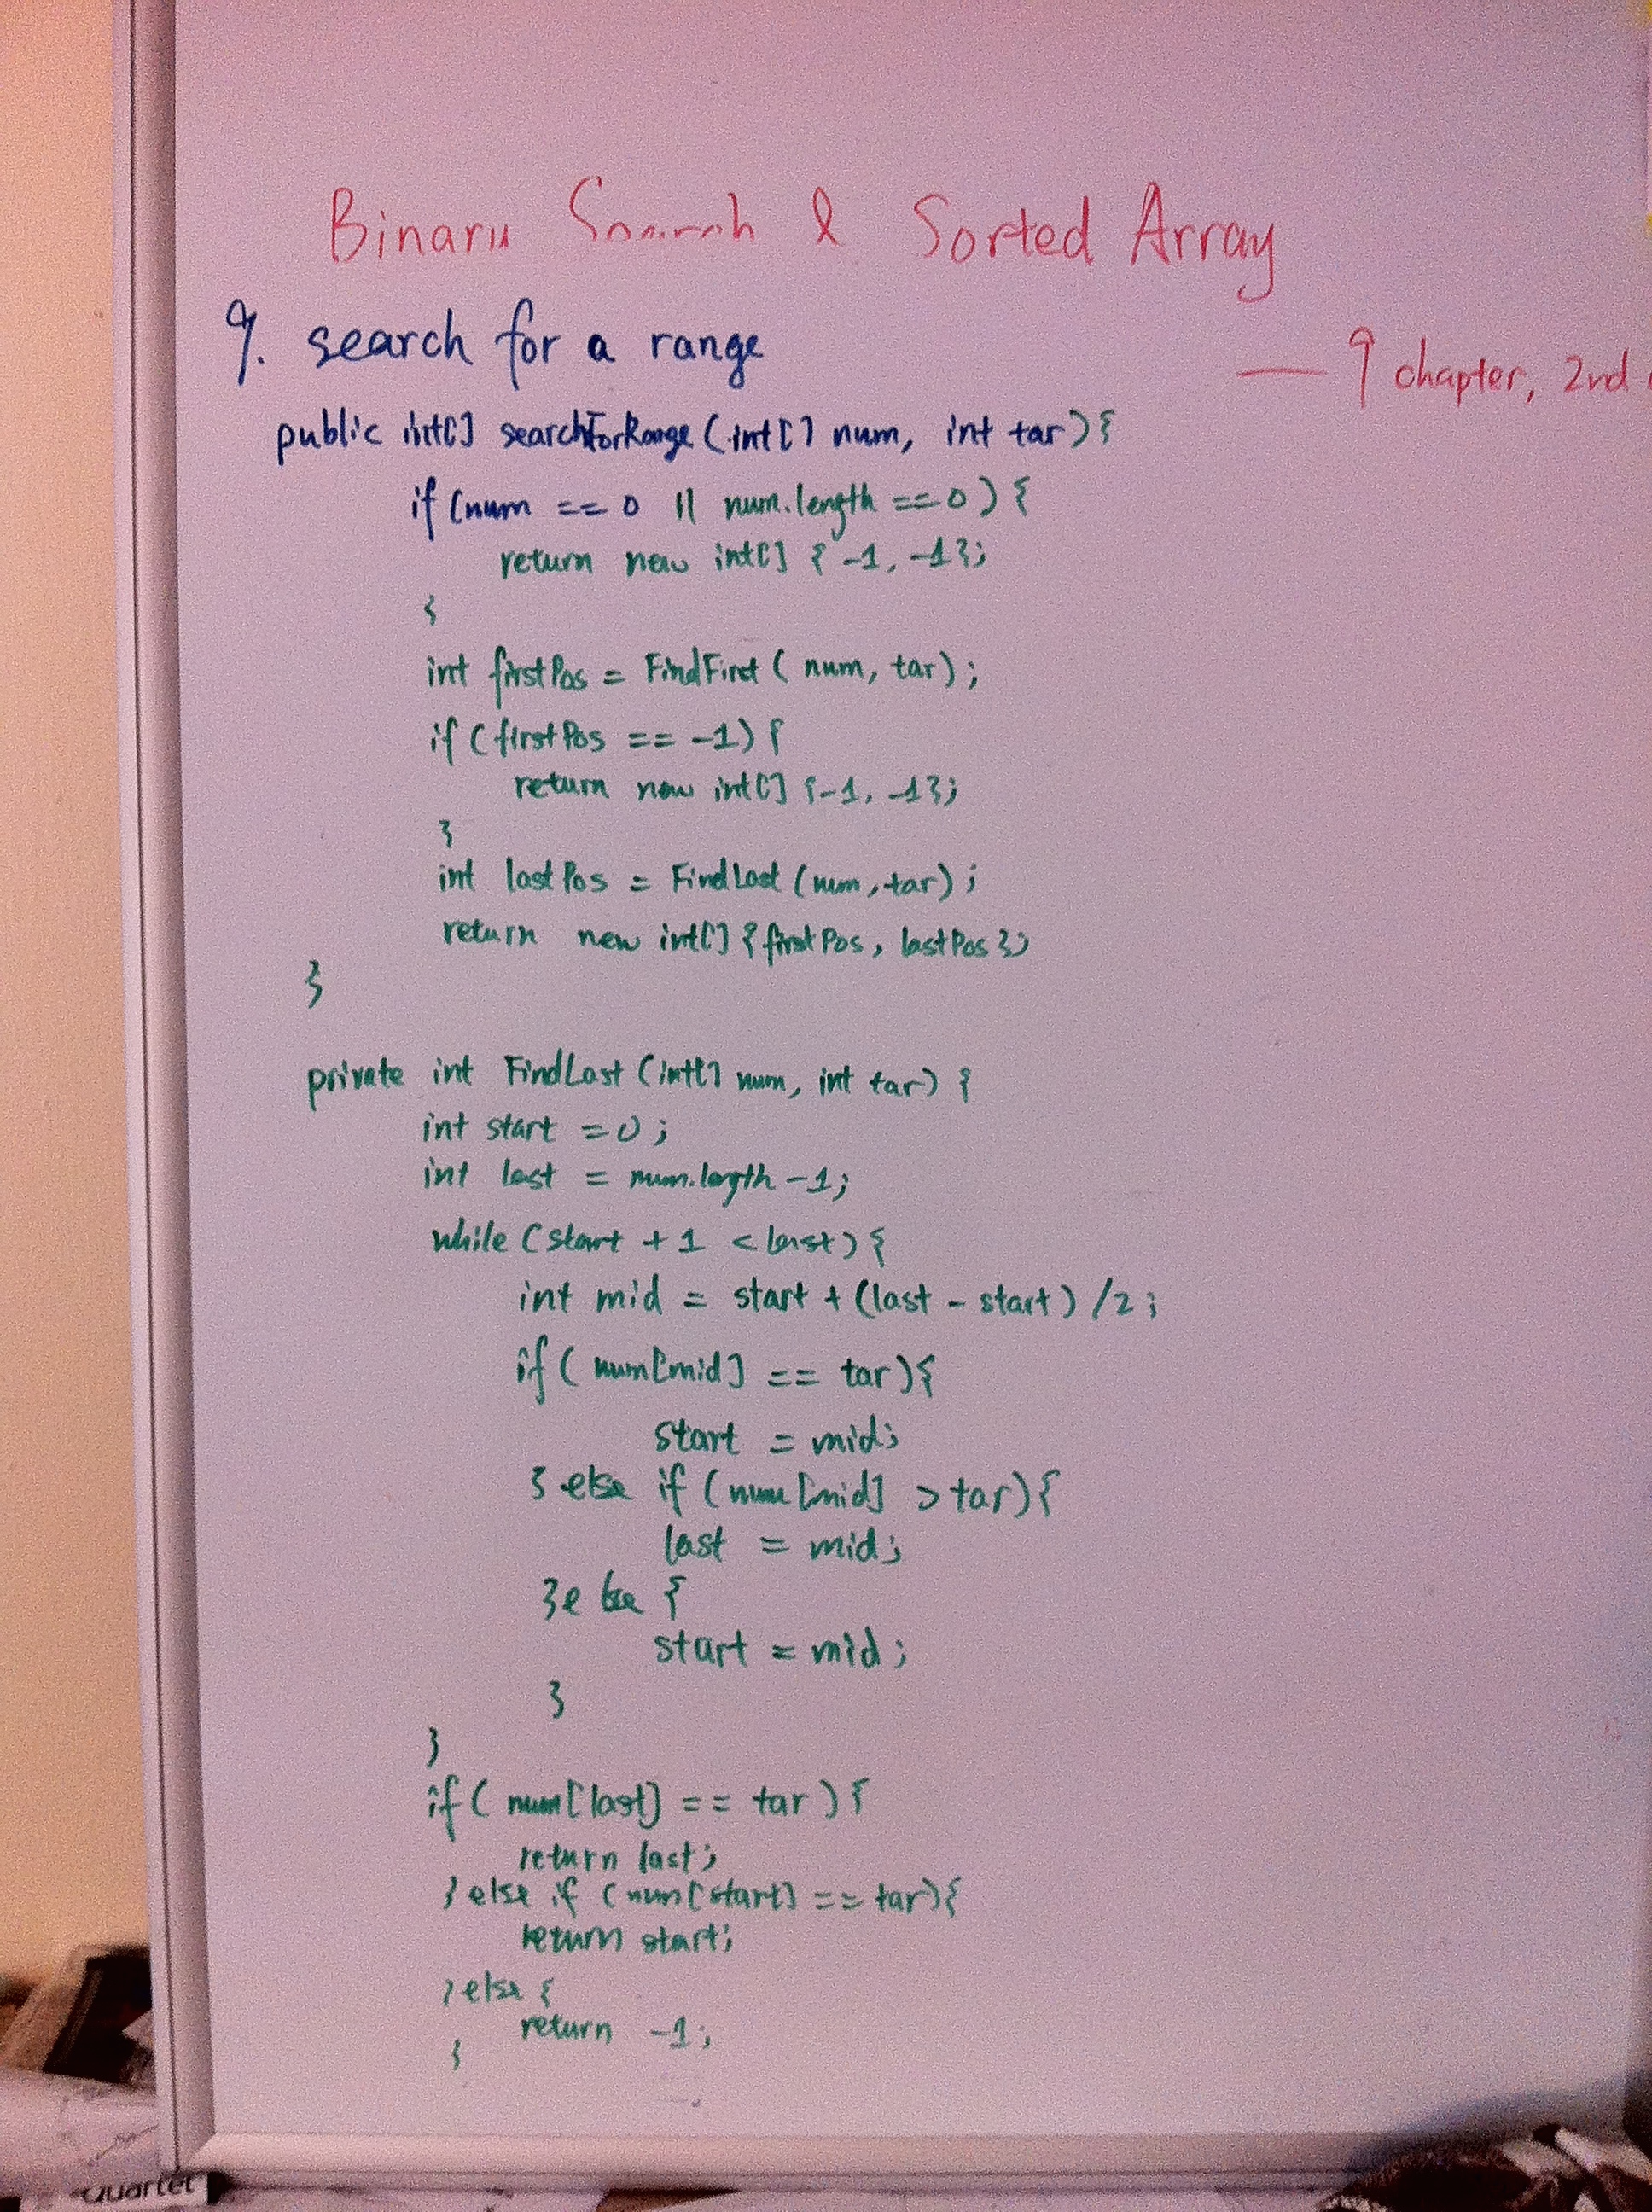 Binary Search & Sorted Array
9. search for a range
— 9 chapter, 2nd
public int[] searchForRange (int[] num, int tar) {
if (num == 0 || num.length == 0) {
return new int[] { -1, -1};
{
int firstPos = FindFirst ( num, tar);
if (firstPos == -1) {
return new int[] {-1, -1};
}
int lastPos = FindLast (num, tar);
return new int[] {firstPos, lastPos};
}
private int FindLast (int[] num, int tar) {
int start = 0;
int last = num.length -1;
while (start + 1 < last) {
int mid = start + (last - start) /2;
if ( num[mid] == tar){
start = mid;
} else if (num [mid] > tar){
last = mid;
}else {
start = mid;
}
}
if ( num[last] == tar ) {
return last;
} else if (num[start] == tar){
return start;
} else {
return -1;
}
Quartet